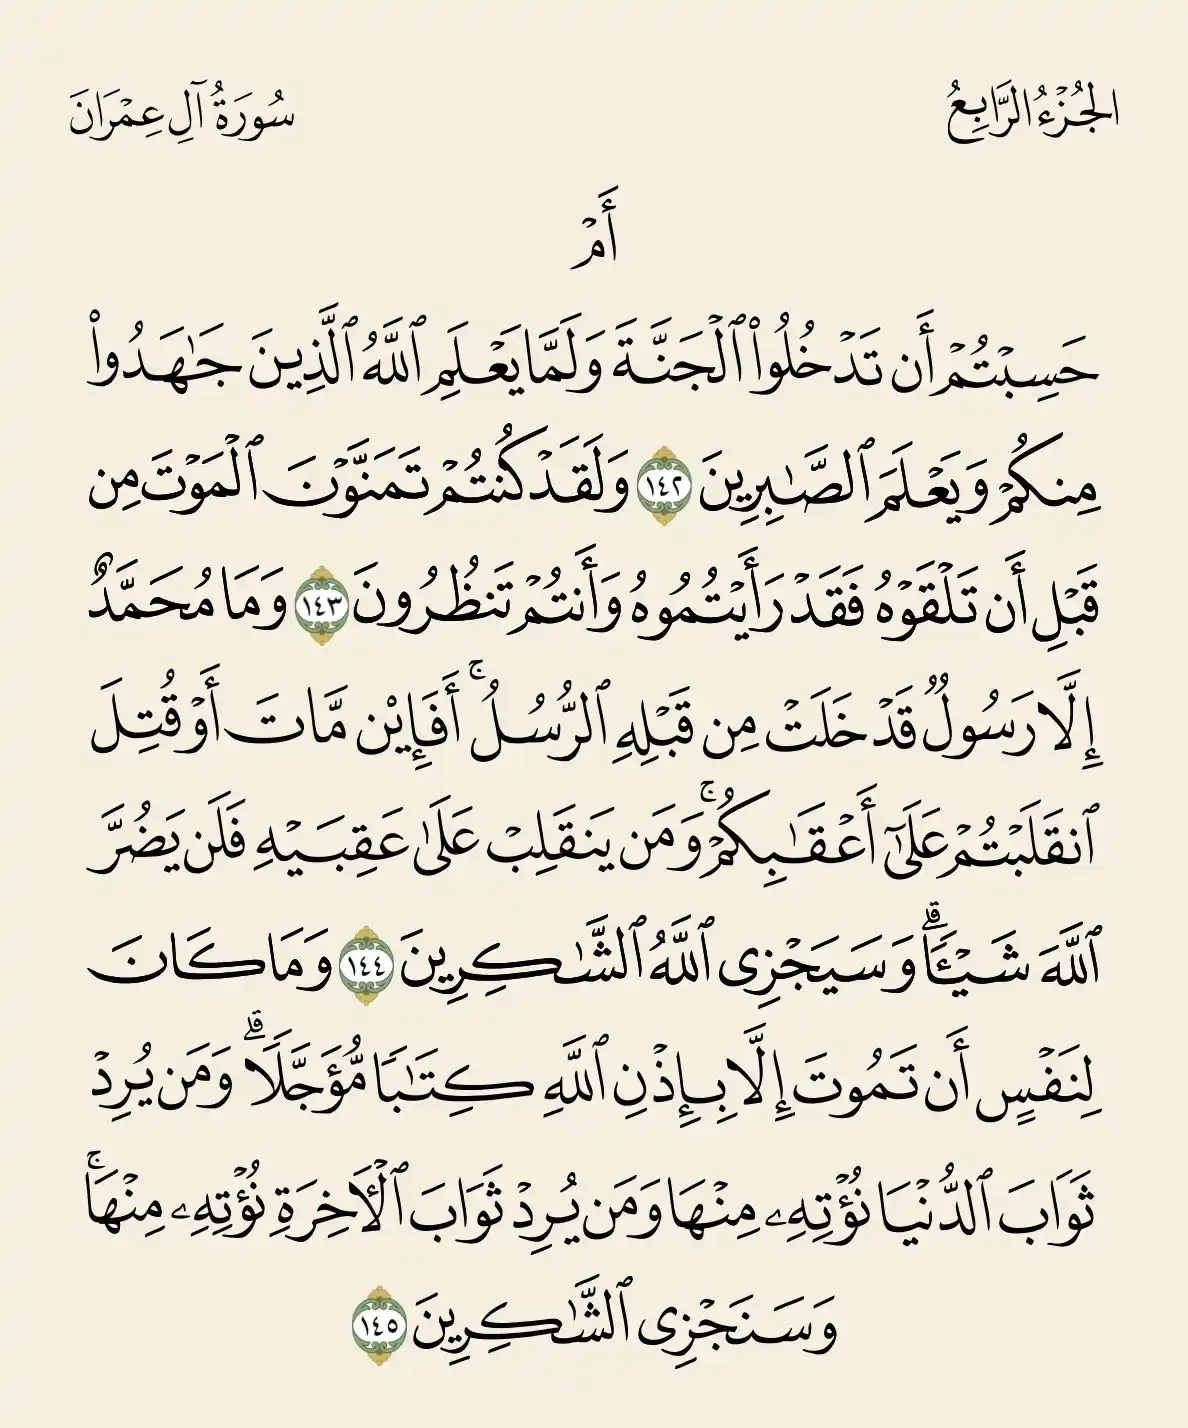 الجُزْءُ الرَّابِعُ
سُورَةُ آلِ عِمْرَانَ
أَمْ
حَسِبْتُمْ أَن تَدْخُلُوا۟ ٱلْجَنَّةَ وَلَمَّا يَعْلَمِ ٱللَّهُ ٱلَّذِينَ جَـٰهَدُوا۟
مِنكُمْ وَيَعْلَمَ ٱلصَّـٰبِرِينَ ١٤٢ وَلَقَدْ كُنتُمْ تَمَنَّوْنَ ٱلْمَوْتَ مِن
قَبْلِ أَن تَلْقَوْهُ فَقَدْ رَأَيْتُمُوهُ وَأَنتُمْ تَنظُرُونَ ١٤٣ وَمَا مُحَمَّدٌ
إِلَّا رَسُولٌ قَدْ خَلَتْ مِن قَبْلِهِ ٱلرُّسُلُ ۚ أَفَإِي۟ن مَّاتَ أَوْ قُتِلَ
ٱنقَلَبْتُمْ عَلَىٰٓ أَعْقَـٰبِكُمْ ۚ وَمَن يَنقَلِبْ عَلَىٰ عَقِبَيْهِ فَلَن يَضُرَّ
ٱللَّهَ شَيْـًٔا ۗ وَسَيَجْزِى ٱللَّهُ ٱلشَّـٰكِرِينَ ١٤٤ وَمَا كَانَ
لِنَفْسٍ أَن تَمُوتَ إِلَّا بِإِذْنِ ٱللَّهِ كِتَـٰبًا مُّؤَجَّلًا ۗ وَمَن يُرِدْ
ثَوَابَ ٱلدُّنْيَا نُؤْتِهِۦ مِنْهَا وَمَن يُرِدْ ثَوَابَ ٱلْـَٔاخِرَةِ نُؤْتِهِۦ مِنْهَا ۚ
وَسَنَجْزِى ٱلشَّـٰكِرِينَ ١٤٥